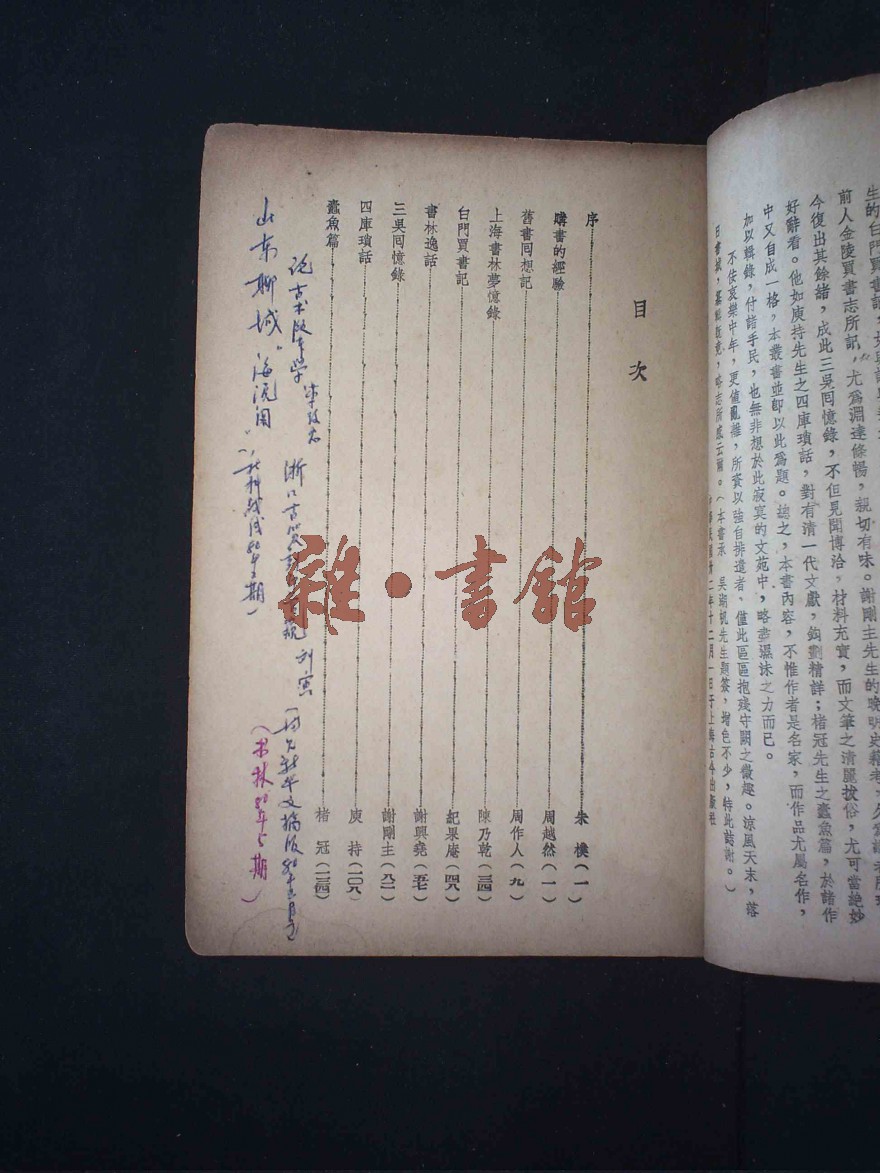 生的白門買書記，
前人金陵買書志所記，尤爲淵達條暢，親切有味。謝剛主先生的晚明史籍考，久爲
今復出其餘緒，成此三吳囘憶錄，不但見聞博洽，材料充實，而文筆之清麗拔俗，尤可當絶妙
好辭看。他如庾持先生之四庫瑣話，對有清一代文獻，鈎劃精詳；楮冠先生之蠹魚篇，於諸作
中又自成一格，本叢書並卽以此爲題。總之，本書內容，不惟作者是名家，而作品尤屬名作，
加以輯錄，付諸手民，也無非想於此寂寞的文苑中，略盡濕沫之力而已。
不佞哀樂中年，更値亂離，所資以強自排遣者，僅此區區抱殘守闕之微趣。涼風天末，落
略志所感云爾。（本書承 吳湖帆先生題簽，增色不少，特此誌謝。）
目次
序 朱樸（一）
購書的經驗 周越然（一）
舊書囘想記 周作人（九）
上海書林夢憶錄 陳乃乾（二四）
白門買書記 紀果庵（四八）
書林逸話 謝興堯（五七）
三吳囘憶錄 謝剛主（八二）
四庫瑣話 庾持（一〇八）
蠹魚篇 楮冠（一二四）
山东聊城"海源阁"
（书林80年5期）
雜·書館